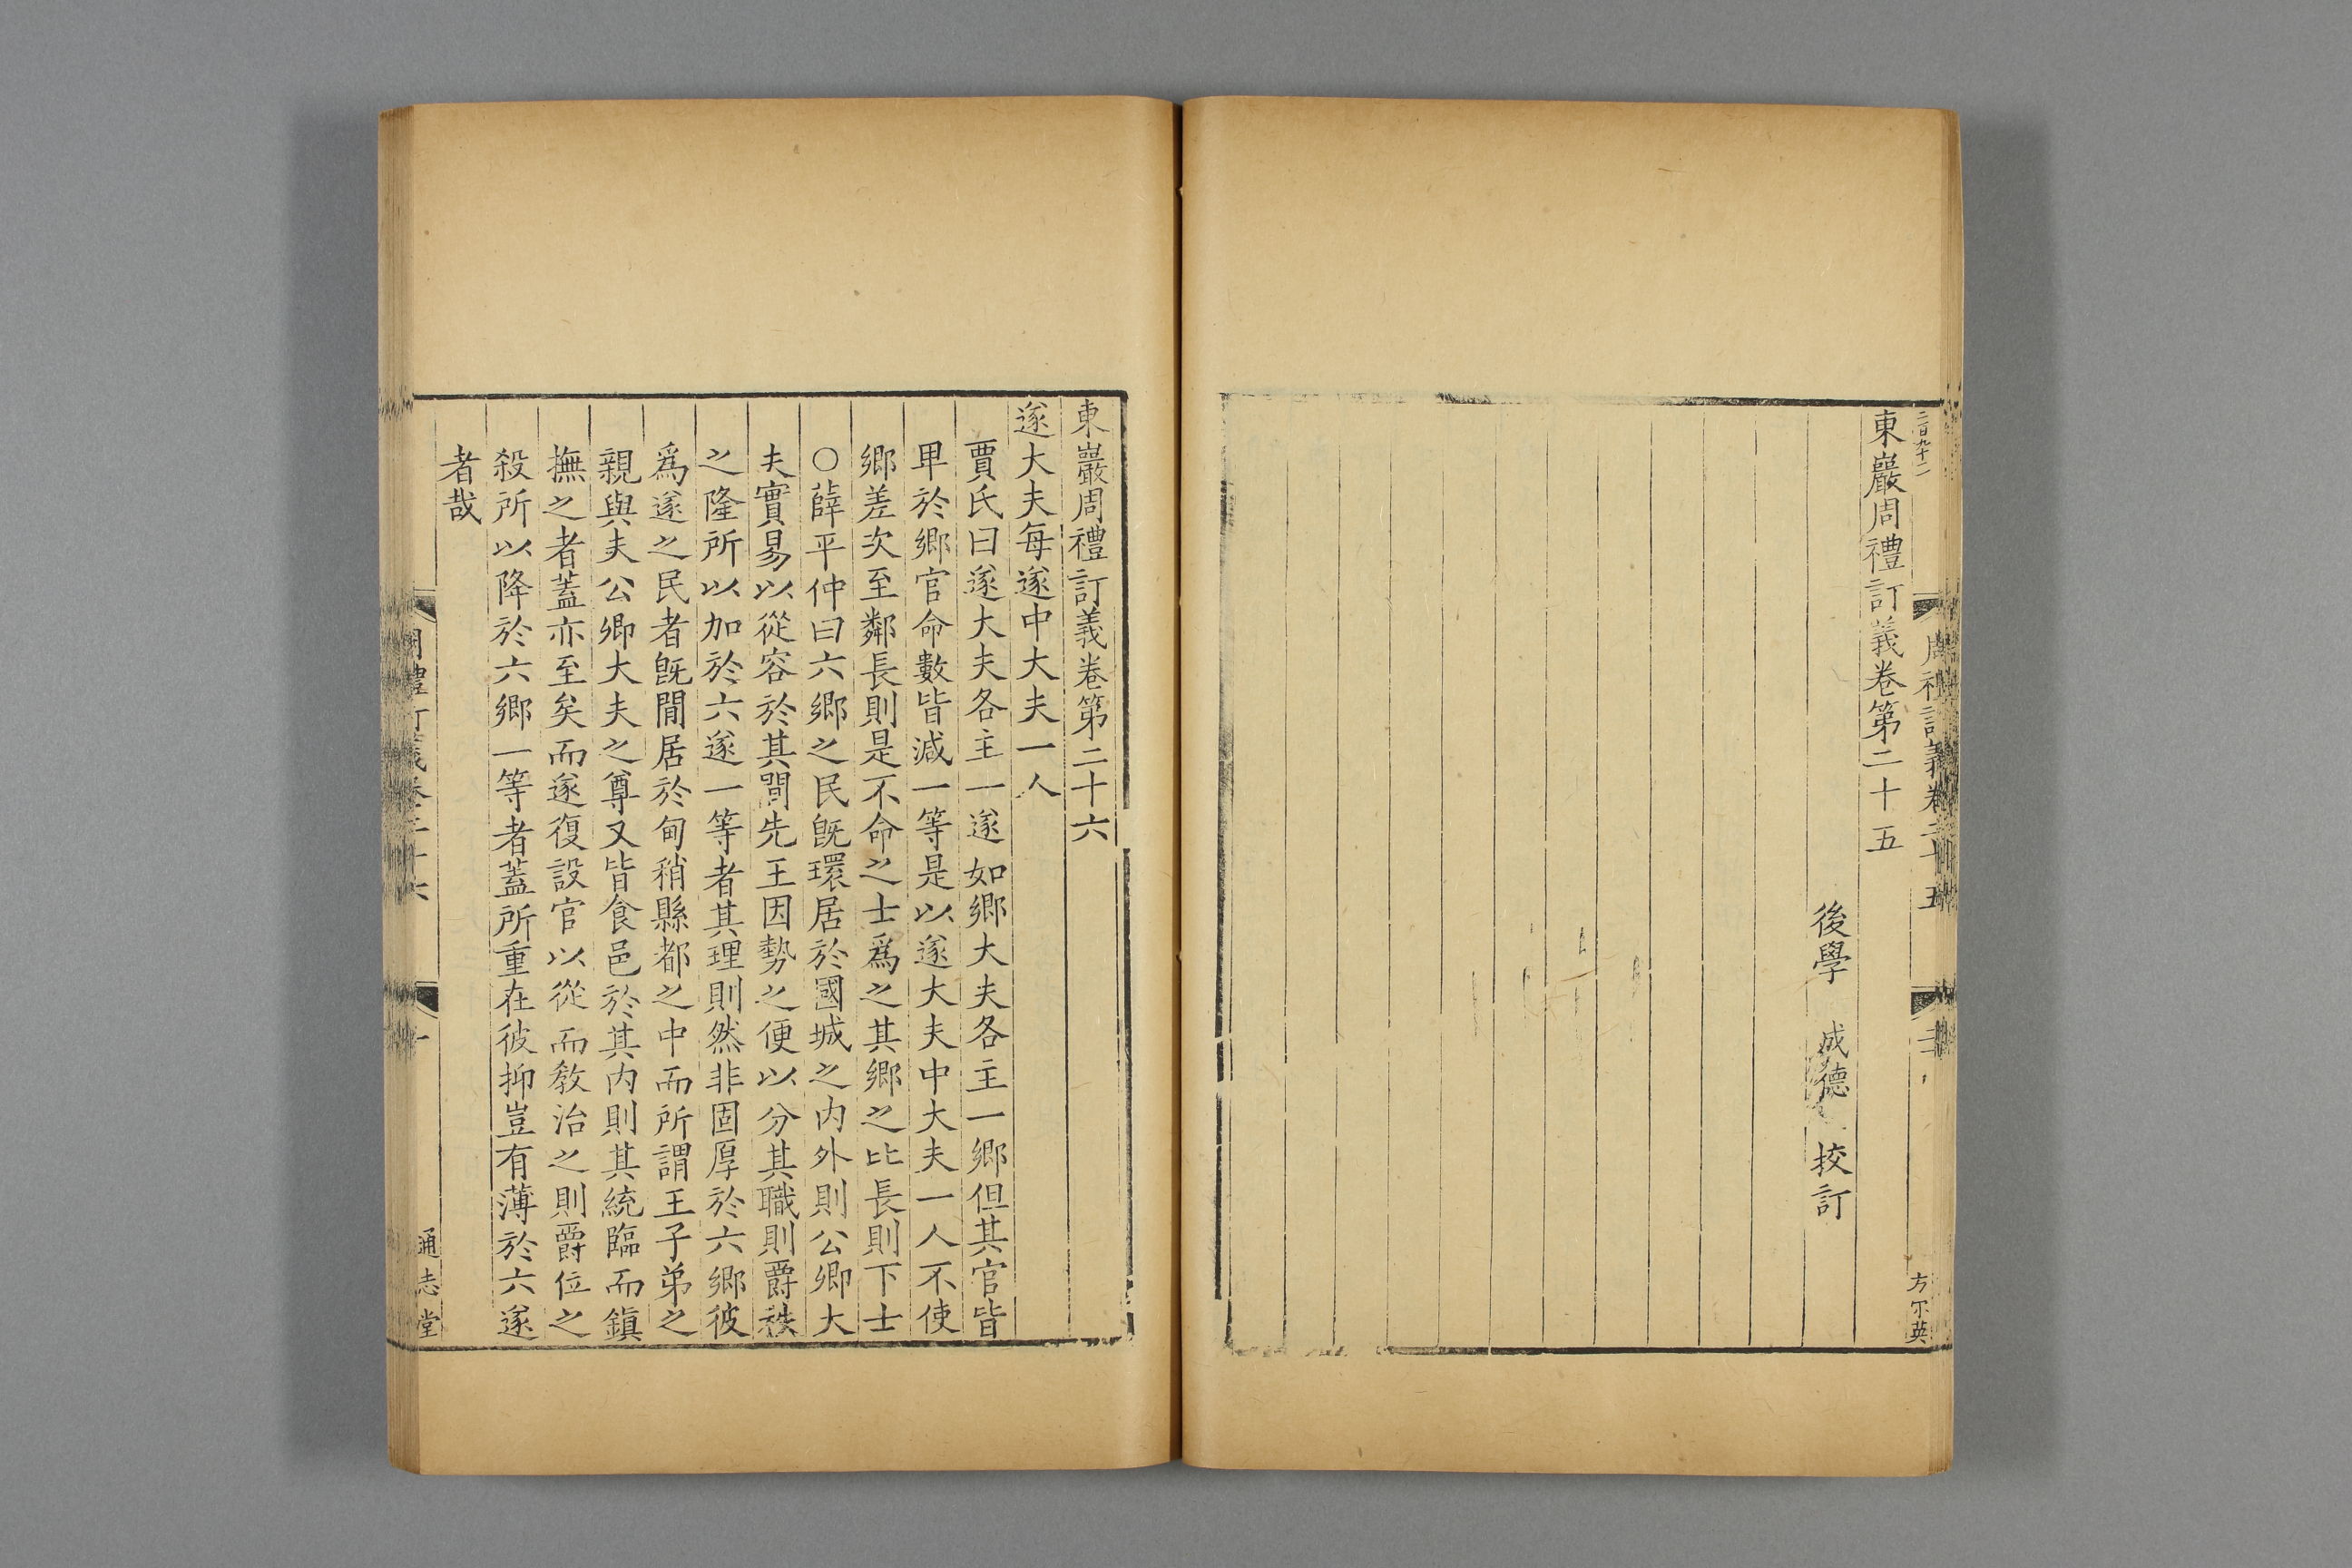 二百九十二
周禮訂義卷二十五
方丕英
東巖周禮訂義卷第二十五
後學 成德 挍訂
東巖周禮訂義卷第二十六
遂大夫每遂中大夫一人
賈氏曰遂大夫各主一遂如鄉大夫各主一鄉但其官皆
卑於鄉官命數皆減一等是以遂大夫中大夫一人不使
鄉差次至鄰長則是不命之士爲之其鄉之比長則下士
○薛平仲曰六鄉之民旣環居於國城之內外則公卿大
夫實易以從容於其間先王因勢之便以分其職則爵秩
之隆所以加於六遂一等者其理則然非固厚於六鄉彼
爲遂之民者旣閒居於甸稍縣都之中而所謂王子弟之
親與夫公卿大夫之尊又皆食邑於其內則其統臨而鎭
撫之者蓋亦至矣而遂復設官以從而敎治之則爵位之
殺所以降於六鄉一等者蓋所重在彼抑豈有薄於六遂
者哉
周禮訂義卷二十六
一
通志堂